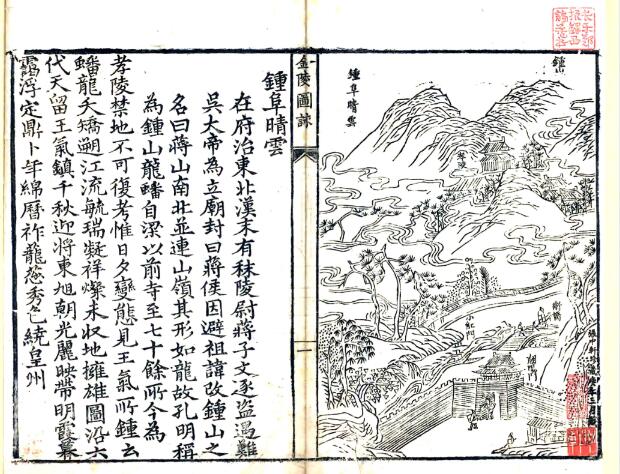 鍾山
鍾阜晴雲
金陵圖詠
一
鍾阜晴雲
在府治東北漢末有秣陵尉蔣子文逐盜遇難
吳大帝為立廟封曰蔣侯因避祖諱改鍾山之
名曰蔣山南北並連山嶺其形如龍故孔明稱
為鍾山龍蟠自梁以前寺至七十餘所今為
孝陵禁地不可復考惟日夕變態見王氣所鍾云
蟠龍夭矯遡江流毓瑞凝祥燦未収地擁雄圖沿六
代天留王氣鎮千秋迎將東旭朝光麗映帶明霞暮
靄浮定鼎卜年綿曆祚龍秀色繞皇州